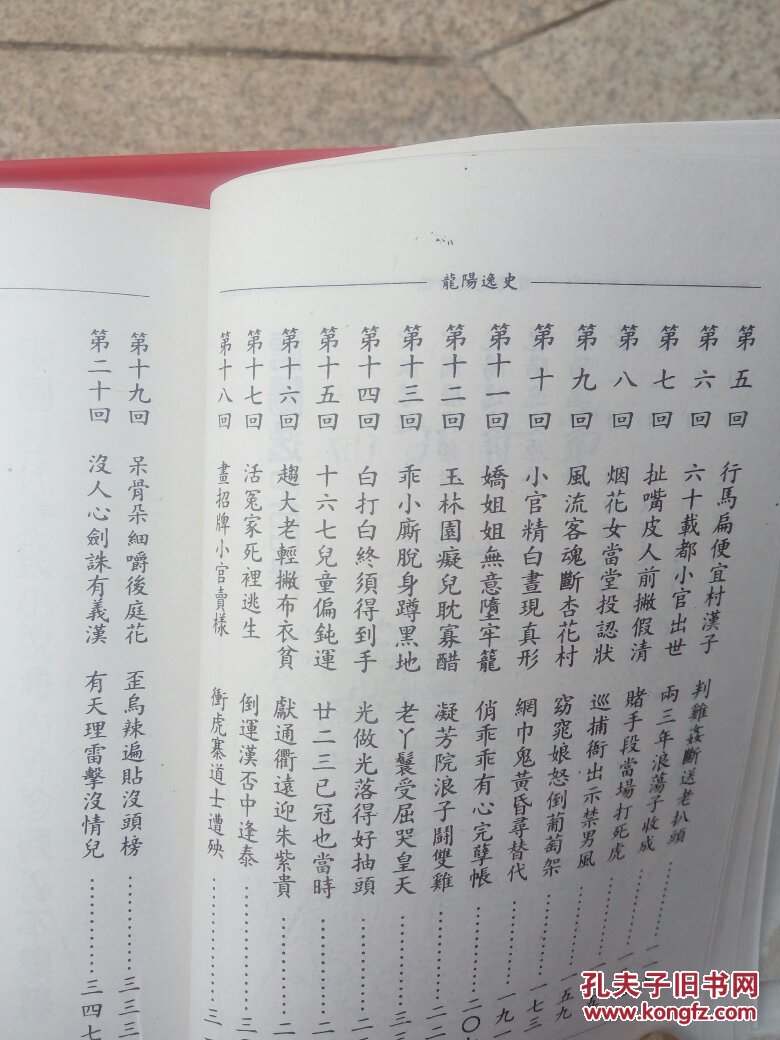 龍陽逸史
第五回 行馬扁便宜村漢子 判雞姦斷送老扒頭
第六回 六十載都小官出世 兩三年浪蕩子收成
第七回 扯嘴皮人前撇假清 賭手段當場打死虎
第八回 烟花女當堂投認狀 巡捕衙出示禁男風
第九回 風流客魂斷杏花村 窈窕娘怒倒葡萄架 一五九
第十回 小官精白晝現真形 網巾鬼黃昏尋替代 一七三
第十一回 嬌姐姐無意墮牢籠 俏乖乖有心完孽帳 一九
第十二回 玉林園癡兒耽寡醋 凝芳院浪子鬪雙雞 二〇
第十三回 乖小廝脫身蹲黑地 老丫鬟受屈哭皇天 二二
第十四回 白打白終須得到手 光做光落得好抽頭 二
第十五回 十六七兒童偏鈍運 廿二三已冠也當時 二
第十六回 趨大老輕撇布衣貧 獻通衢遠迎朱紫貴 二
第十七回 活冤家死裡逃生 倒運漢否中逢泰 三
第十八回 畫招牌小官賣樣 衝虎寨道士遭殃 三
第十九回 呆骨朵細嚼後庭花 歪烏辣遍貼沒頭榜 三三三
第二十回 沒人心劍誅有義漢 有天理雷擊沒情兒 三四七
孔夫子旧书网
www.kongfz.com